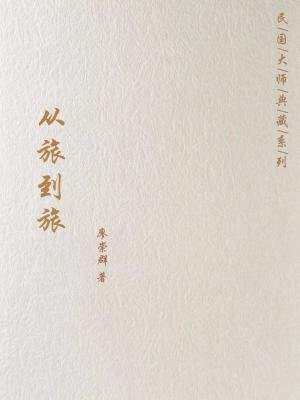 民|国|大|师|典|藏|系|列
从旅到旅
廖崇群 著